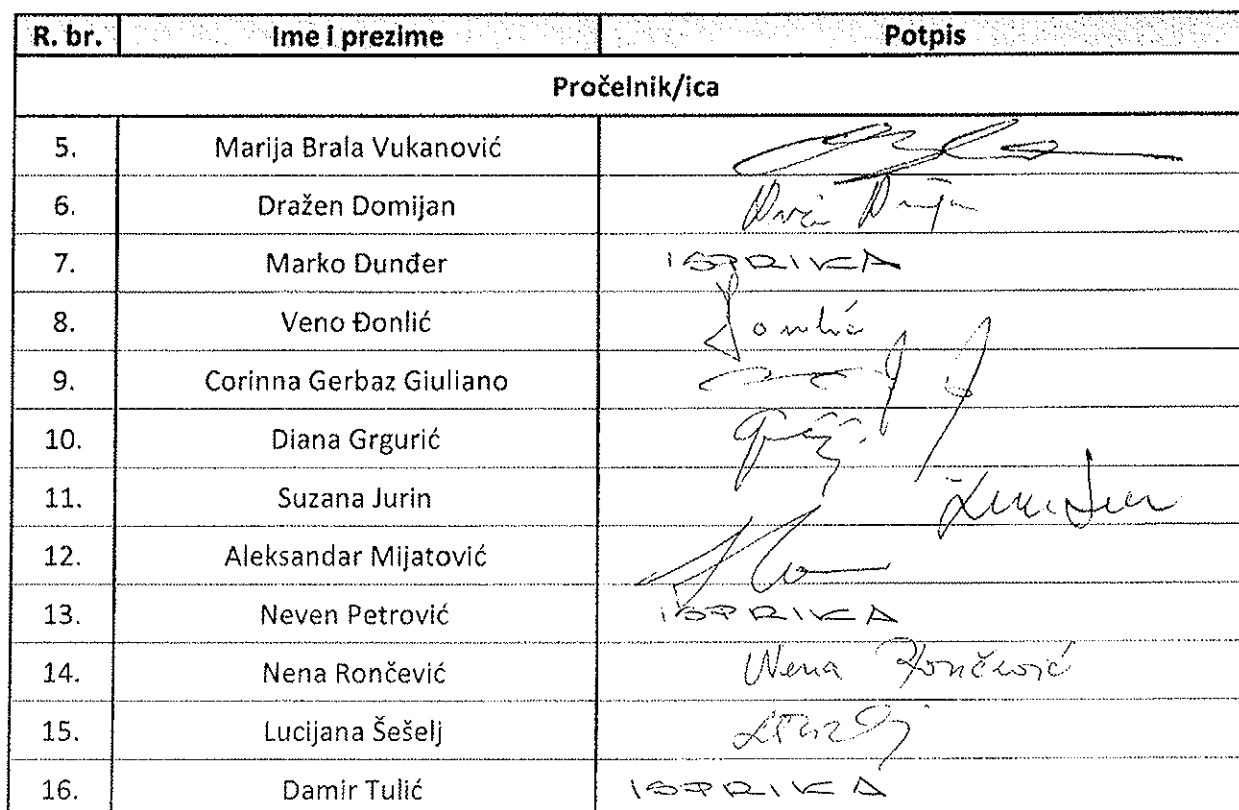 R. br. Ime i prezime Potpis
Pročelnik/ica
5. Marija Brala Vukanović
6. Dražen Domijan
7. Marko Dunđer ISPRIKA
8. Veno Đonlić Đonlić
9. Corinna Gerbaz Giuliano
10. Diana Grgurić
11. Suzana Jurin
12. Aleksandar Mijatović
13. Neven Petrović ISPRIKA
14. Nena Rončević Nena Rončević
15. Lucijana Šešelj
16. Damir Tulić ISPRIKA